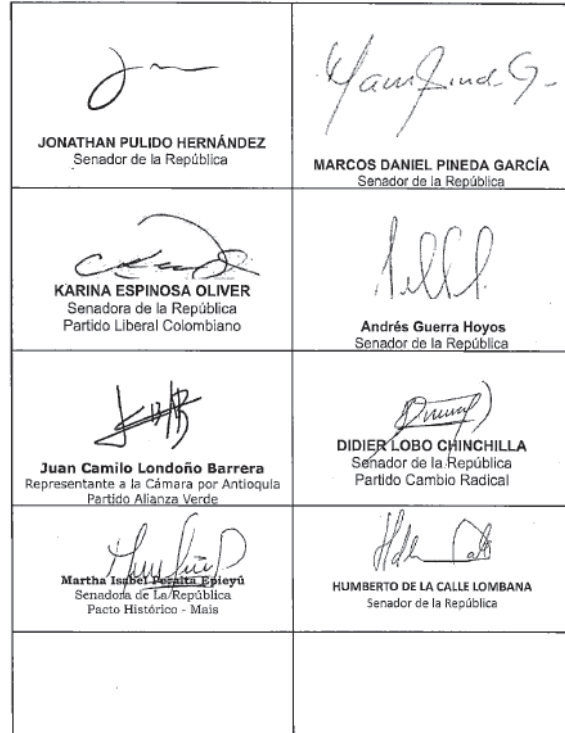 JONATHAN PULIDO HERNÁNDEZ
Senador de la República
MARCOS DANIEL PINEDA GARCÍA
Senador de la República
KARINA ESPINOSA OLIVER
Senadora de la República
Partido Liberal Colombiano
Andrés Guerra Hoyos
Senador de la República
Juan Camilo Londoño Barrera
Representante a la Cámara por Antioquia
Partido Alianza Verde
DIDIER LOBO CHINCHILLA
Senador de la República
Partido Cambio Radical
Martha Isabel Peralta Epieyú
Senadora de La República
Pacto Histórico - Mais
HUMBERTO DE LA CALLE LOMBANA
Senador de la República